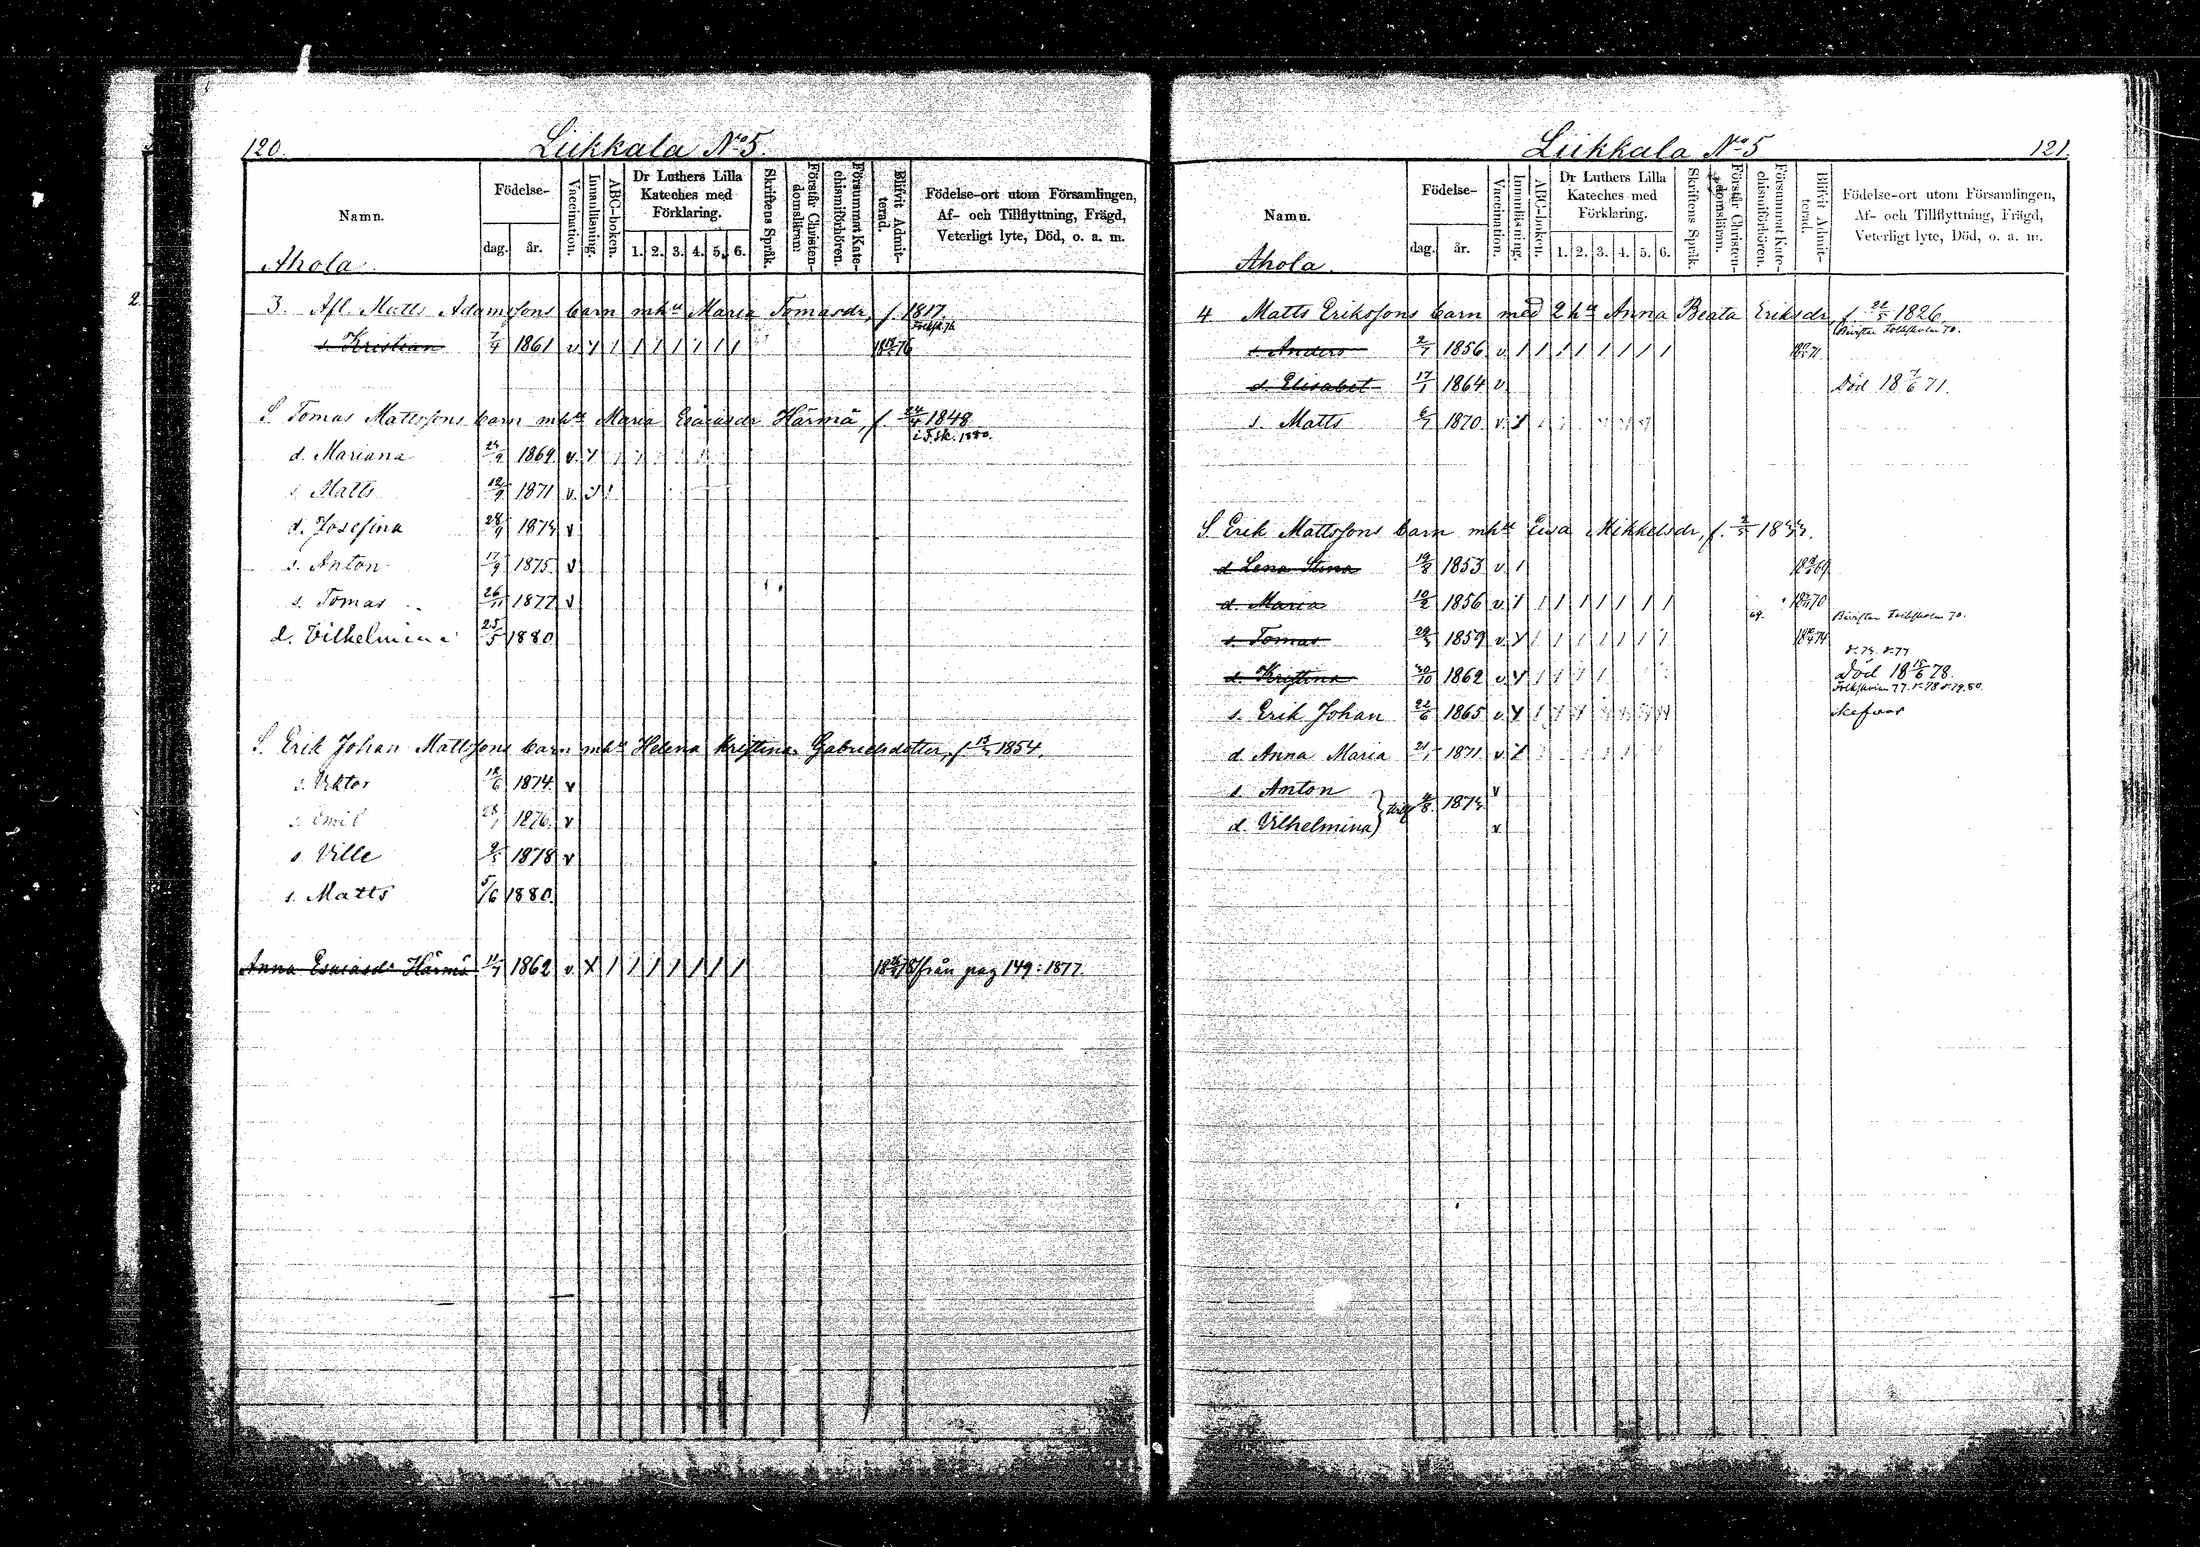 120.
Liikkala No 5.
Namn.
Födelse-
dag.
år.
Vaccination.
Innanläsning.
ABC-boken.
Dr Luthers Lilla
Kateches med
Förklaring.
1. 2. 3. 4. 5. 6.
Skriftens Språk.
Förstår Christen-
domsläran.
Försummat Kate-
chismiförhören.
Blifvit Admit-
terad.
Födelse-ort utom Församlingen,
Af- och Tillflyttning, Frägd,
Veterligt lyte, Död, o. a. m.
Ahola
3. Afl. Matts Adamssons barn mhu Maria Tomasdr, f. 1817.
s. Kristian 7/4 1861 v
S. Tomas Mattssons barn mhu Maria Esaiasdr Härmä, f. 24/4 1848
i F.sk. 1880.
d. Mariana 24/9 1869 v.
s. Matts 12/9 1871 v.
d. Josefina 28/9 1874 v
s. Anton 17/9 1875. v
s. Tomas 26/11 1877 v
d. Vilhelmina 25/5 1880
S. Erik Johan Mattssons barn mhu Helena Kristina Gabrielsdotter, f. 1854.
s. Viktor 12/6 1874 v
s. Emil 1876. v
s Ville 9/5 1878 v
s. Matts 5/6 1880.
Anna Esaiasdr Härmä 11/7 1862 v. från pag 149: 1877.
Liikkala No 5
121.
Namn.
Födelse-
dag.
år.
Vaccination.
Innanläsning.
ABC-boken.
Dr Luthers Lilla
Kateches med
Förklaring.
1. 2. 3. 4. 5. 6.
Skriftens Språk.
Förstår Christen-
domsläran.
Försummat Kate-
chismiförhören.
Blifvit Admit-
terad.
Födelse-ort utom Församlingen,
Af- och Tillflyttning, Frägd,
Veterligt lyte, Död, o. a. m.
Ahola.
4 Matts Erikssons barn med 2 hu Anna Beata Eriksdr, f. 22/5 1826
Bevistar Folkskolan 70.
s Anders 2/7 1856 v.
d. Elisabet 17/1 1864 v. Död 18 7/6 71.
s. Matts 6/7 1870. v.
S. Erik Mattssons barn mhu Eeva Mikkelsdr, f.
d Lena Stina 19/8 1853 v.
d. Maria 10/2 1856 v.
69.
Bevistar Folkskolan 70.
s. Tomas 1859 v.
d. Kristina 30/10 1862 v. Död 18 15/6 78.
Folkskolan 77.
s. Erik Johan 22/6 1865 v.
d Anna Maria 21/1 1871 v.
s Anton v
tvill. 4/8 1874
d. Vilhelmina v